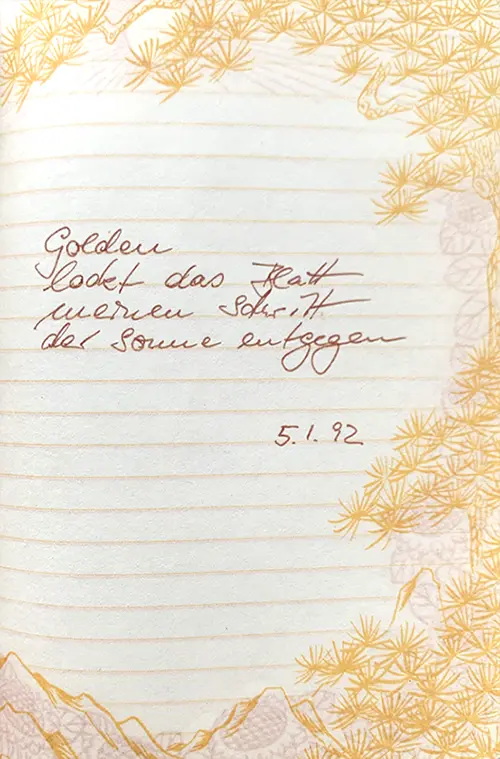 Golden
lockt das Blatt
meinen Schritt
der Sonne entgegen
5.1.92